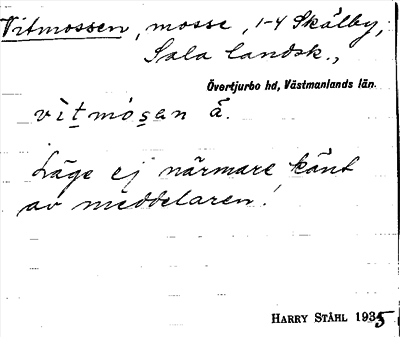 Vitmossen, mosse, 1-4 Skälby,
Sala landsk.,
Övertjurbo hd, Västmanlands län.
vìt̲mós̲an å.
Läge ej närmare känt
av meddelaren.
HARRY STÅHL 1935